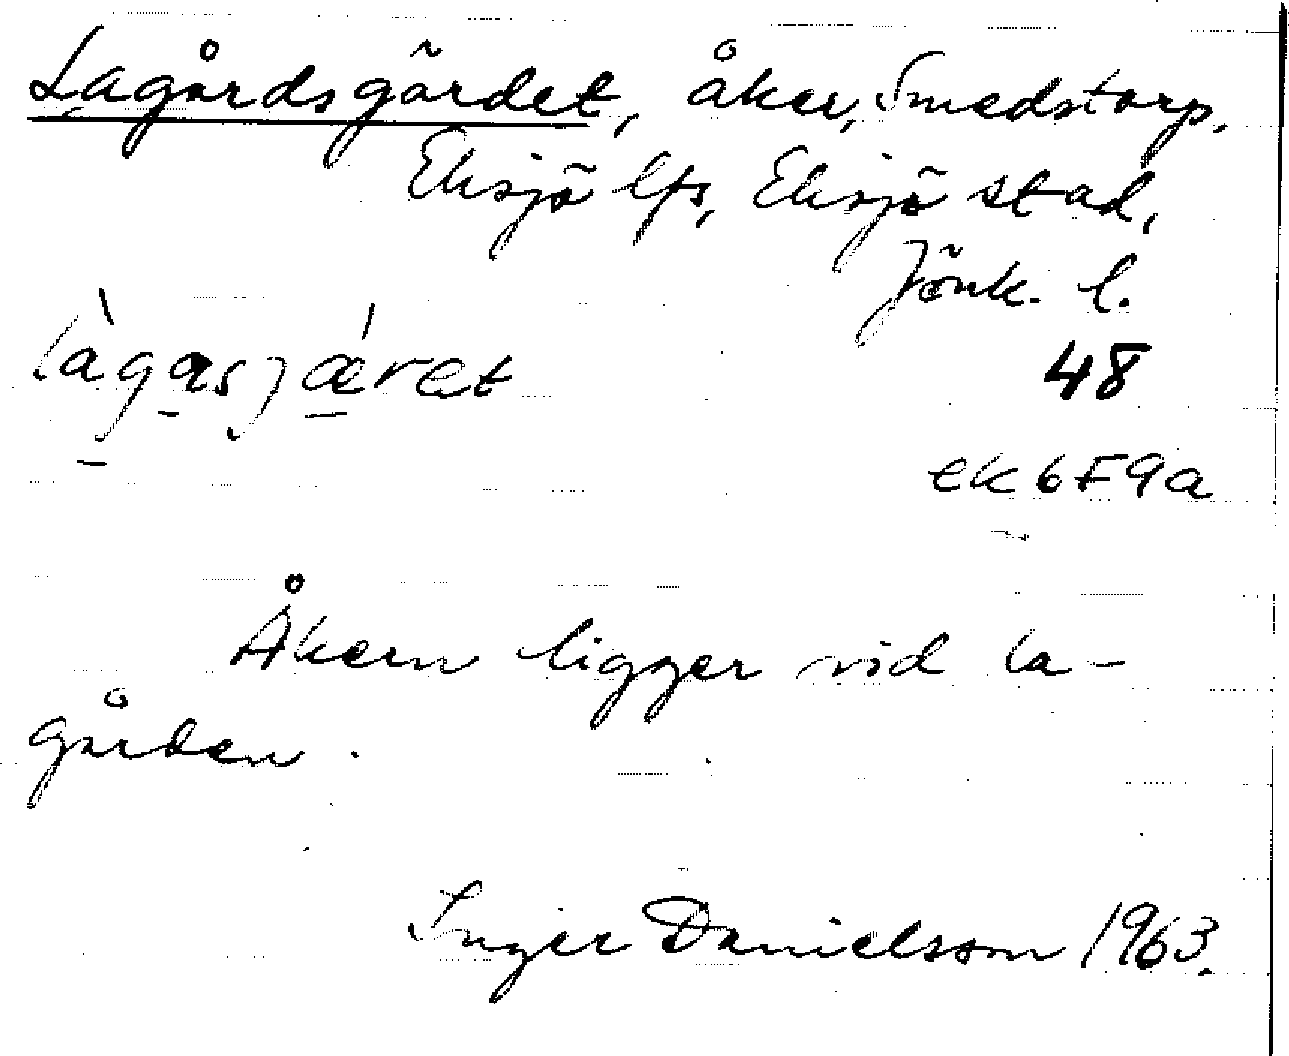 Lagårdsgärdet, åker, Smedstorp,
Eksjö lfs, Eksjö stad,
Jönk. l.
làgasjǽret
48
ek 6F9a
Åkern ligger vid la-
gården.
Inger Danielsson 1963.